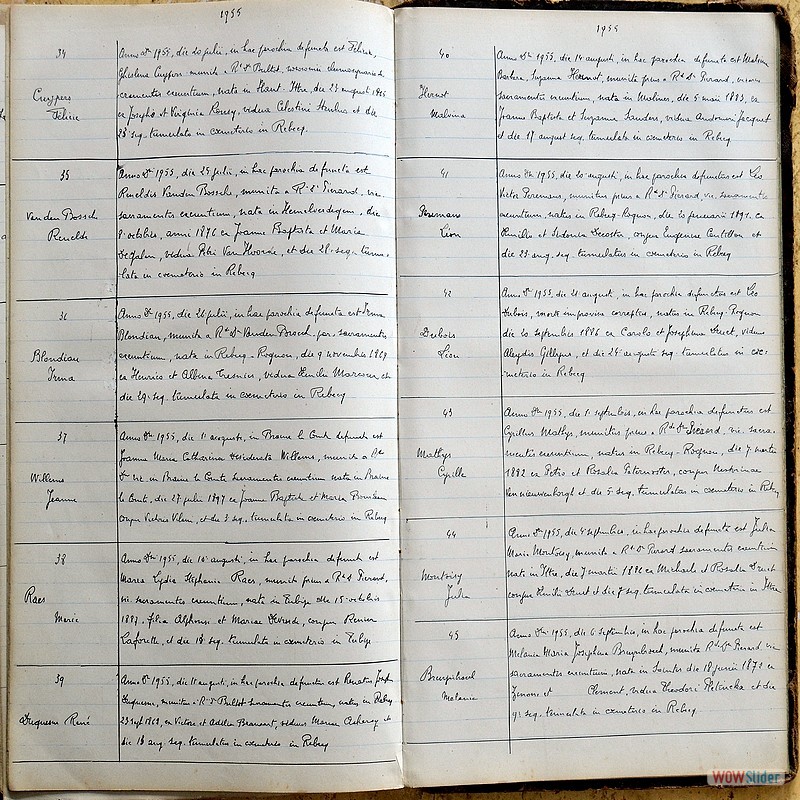 1955
34
Cuypers
Félicie
Anno Dni 1955, die 20 julii, in hac parochia defuncta est Félicie,
Ghislena Cuypers munita a Rdo Dno Bullot,
cramentis exeuntium, nata in Haut-Ittre, die 23 augusti
ex Josepho et Virginia Rowey, vidua Celestini et die
23 seq. tumulata in cœmeterio in Rebecq.
35
Van den Bossche
Reneldis
Anno Dni 1955, die 25 julii, in hac parochia defuncta est
Reneldis Vanden Bossche, munita a Rdo Do Pierard, vic.
sacramentis exeuntium, nata in Hemelverdegem, die
8 octobris, anni 1876 ex Joanne Baptista et Maria
vidua Petri Van Hoorde, et die 28 seq. tumu-
lata in cœmeterio in Rebecq
36
Blondiau
Irma
Anno Dni 1955, die 26 julii, in hac parochia defuncta est Irma
Blondiau, munita a Rdo Do Vanden Bossche, par. sacramentis
exeuntium, nata in Rebecq-Rognon, die 9 novembris 1869
ex Henrico et Albina Tresnies, vidua Emilii et
die 29 seq. tumulata in cœmeterio in Rebecq
37
Willems
Jeanne
Anno Dni 1955, die 1a augusti, in Braine le Comte defuncta est
Joanna Maria Catharina Desiderata Willems, munita a Rdo
Do vic in Braine le Comte sacramentis exeuntium nata in Braine
le Comte, die 27 julii 1897 ex Joanne Baptista et Maria
conjux Victoris Vilain, et die 3 seq. tumulata in cœmeterio in Rebecq
38
Raes
Marie
Anno Dni 1955, die 16 augusti, in hac parochia defuncta est
Maria Lydia Stephania Raes, munita prius a Rdo D Pierard,
vic. sacramentis exeuntium, nata in Tubize die 15 octobris
1887, filia Alphonsi et Mariae Devroede, conjux
Laforette, et die 18 seq. tumulata in cœmeterio in Tubize
39
Duquesne René
Anno Do 1955, die 11 augusti, in hac parochia defunctus est Renatus Joseph
Duquesne, munitus a Rdo Do Bullot sacramentis exeuntium, natus in Rebecq
23 sept 1869, ex Victore et Adelia Brancart, viduus Mariae et
die 13 aug. seq. tumulatus in cœmeterio in Rebecq
1955
40
Hernot
Malvina
Anno Dni 1955, die 14 augusti, in hac parochia defuncta est Malvina
Barbara, Suzanna Hernot, munita prius a Rdo Do Pierard, vicario
sacramentis exeuntium, nata in die 5 maii 1883, ex
Joanne Baptista et Suzanna Sanders, vidua Jacquet
et die 17 august seq. tumulata in cœmeterio in Rebecq
41
Léon
Anno Dni 1955, die 20 augusti, in hac parochia defunctus est Leo
Victor munitus prius a Rdo D Pierard, vic. sacramentis
exeuntium, natus in Rebecq-Rognon, die 10 januarii 1891, ex
Emilio et Sidonia Decoster, conjux Eugeniae Cantillon et
die 23 aug. seq. tumulatus in cœmeterio in Rebecq
42
Dubois
Léon
Anno Do 1955, die 21 augusti, in hac parochia defunctus est Leo
Dubois, morte improvisa correptus, natus in Rebecq-Rognon
die 20 septembris 1886 ex Carolo et Josephina viduus
Aleydis Gilleyns, et die 24 augusti seq. tumulatus in cœ-
meterio in Rebecq
43
Mathys
Cyrille
Anno Dni 1955, die 1a septembris, in hac parochia defunctus est
Cyrillus Mathys, munitus prius a Rdo Do Pierard, vic. sacra-
mentis exeuntium, natus in Rebecq-Rognon, die 7 martii
1882 ex Petro et Rosalia Paternoster, conjux
Van nieuwenborgh et die 5 seq. tumulatus in cœmeterio in Rebecq
44
Montoisy
Julia
Anno Do 1955, die 4 septembris, in hac parochia defuncta est Julia
Maria Montoisy, munita a Rdo Do Pierard sacramentis exeuntium
nata in Ittre, die 7 martii 1876 ex Michaele et Rosalia
conjux Emilii et die 7 seq. tumulata in cœmeterio in Ittre
45
Bruynbroeck
Mélanie
Anno Dni 1955, die 6 septembris, in hac parochia defuncta est
Melania Maria Josephina Bruynbroeck, munita Rdo Do Pierard vic
sacramentis exeuntium, nata in Saintes die 18 junii 1872 ex
et Clement, vidua Theodori Pletincka et die
9a seq. tumulata in cœmeterio in Rebecq
WOWSlider